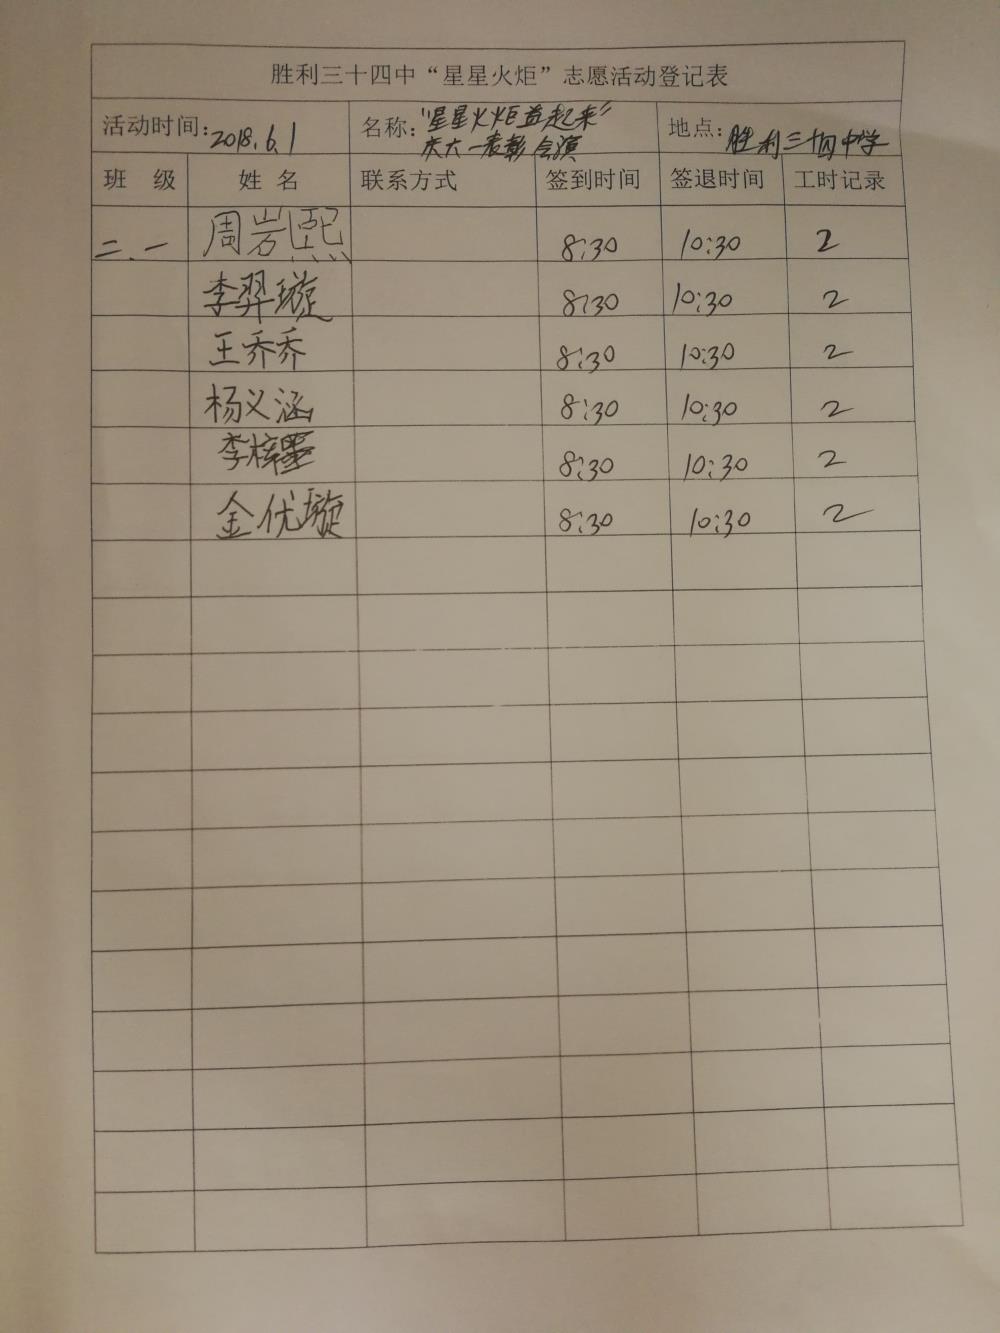 胜利三十四中“星星火炬”志愿活动登记表
活动时间：2018.6.1 名称：“星星火炬益起来” 庆六一表彰会演 地点：胜利三十四中学
班 级 姓 名 联系方式 签到时间 签退时间 工时记录
二.一 周岩熙 8:30 10:30 2
李羿璇 8:30 10:30 2
王乔乔 8:30 10:30 2
杨义涵 8:30 10:30 2
李梓墨 8:30 10:30 2
金优璇 8:30 10:30 2